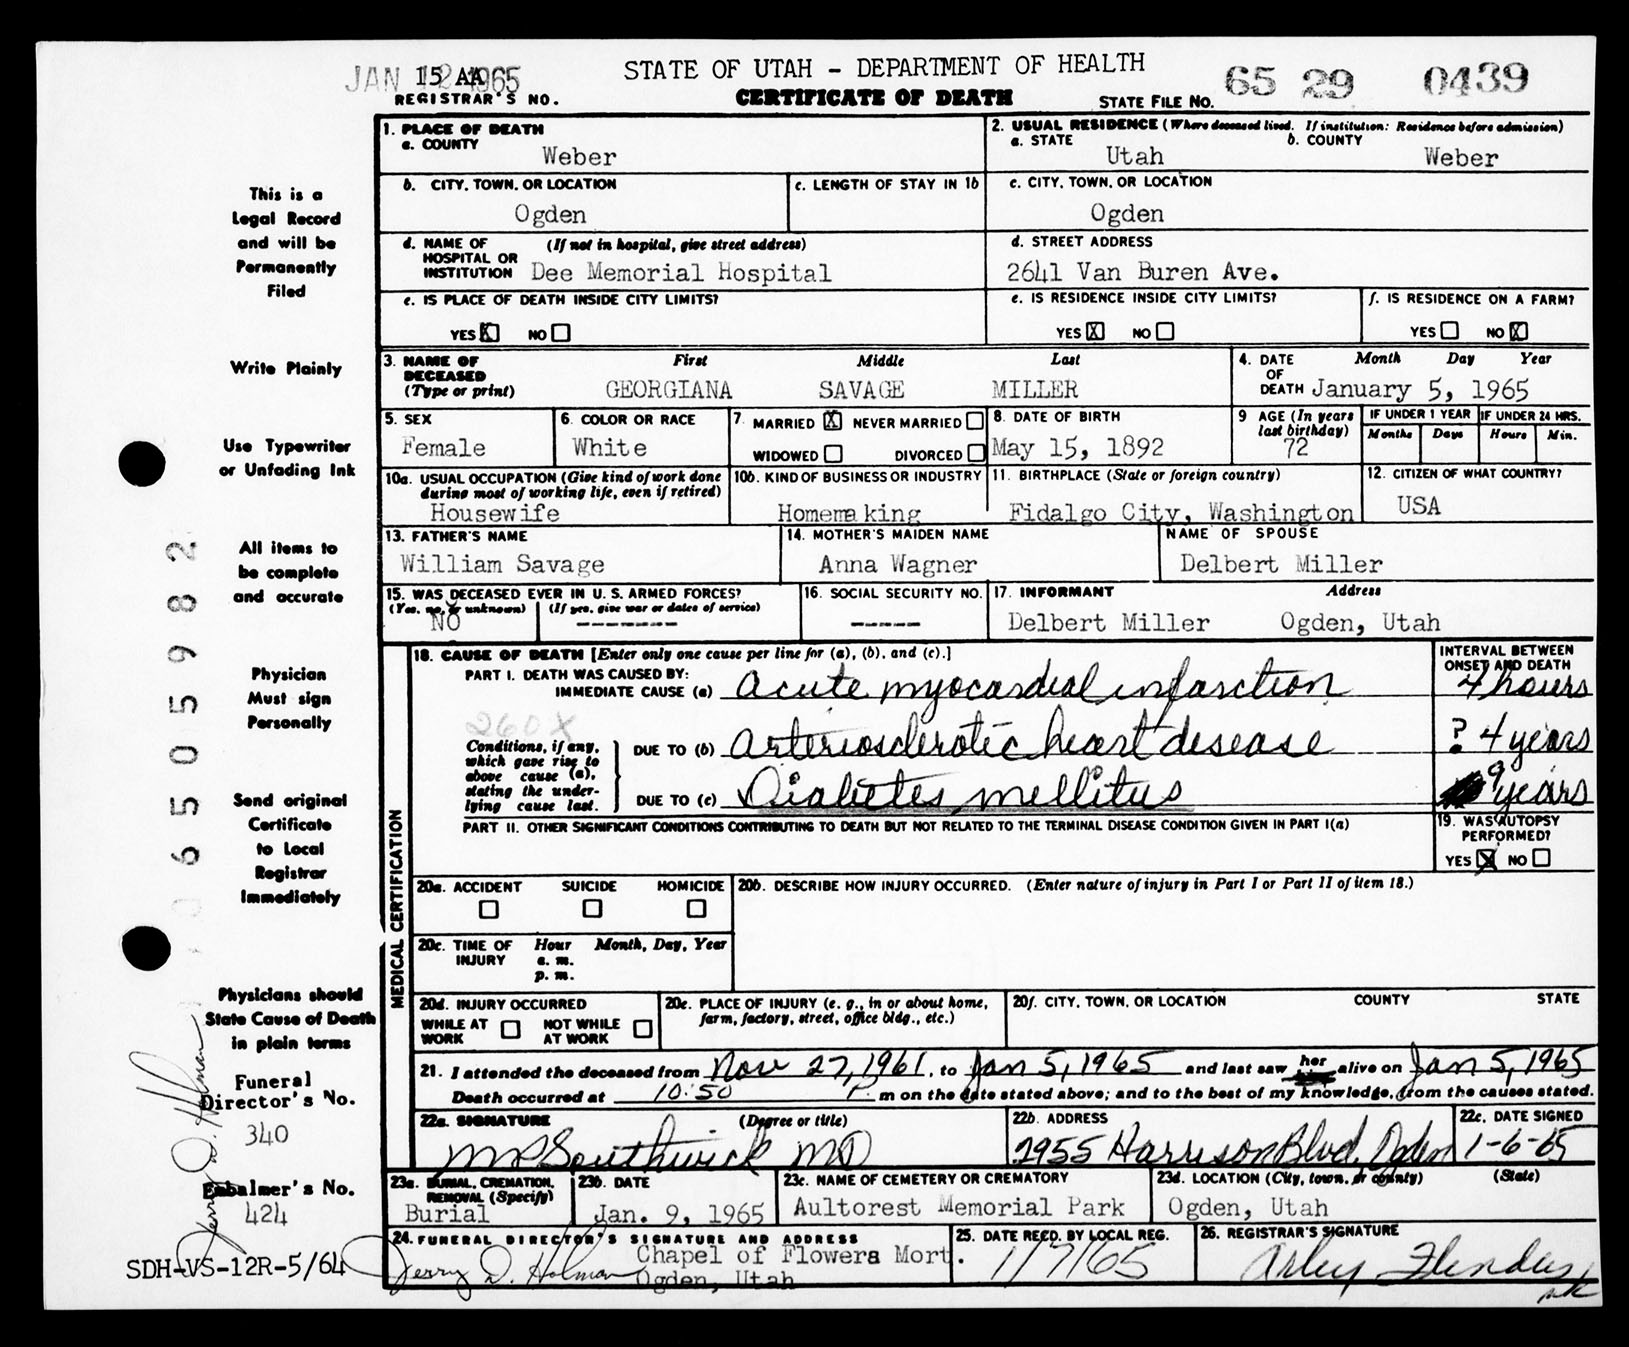 JAN 12 1965
15 AA
REGISTRAR'S NO.
STATE OF UTAH - DEPARTMENT OF HEALTH
CERTIFICATE OF DEATH
STATE FILE NO. 65 29 0439
1. PLACE OF DEATH
a. COUNTY
Weber
2. USUAL RESIDENCE (Where deceased lived. If institution: Residence before admission)
a. STATE
Utah
b. COUNTY
Weber
b. CITY, TOWN, OR LOCATION
Ogden
c. LENGTH OF STAY IN 1b
c. CITY, TOWN, OR LOCATION
Ogden
d. NAME OF HOSPITAL OR INSTITUTION
(If not in hospital, give street address)
Dee Memorial Hospital
d. STREET ADDRESS
2641 Van Buren Ave.
e. IS PLACE OF DEATH INSIDE CITY LIMITS?
YES X NO
e. IS RESIDENCE INSIDE CITY LIMITS?
YES X NO
f. IS RESIDENCE ON A FARM?
YES NO X
3. NAME OF DECEASED (Type or print)
First Middle Last
GEORGIANA SAVAGE MILLER
4. DATE OF DEATH
Month Day Year
January 5, 1965
5. SEX
Female
6. COLOR OR RACE
White
7. MARRIED X NEVER MARRIED
WIDOWED DIVORCED
8. DATE OF BIRTH
May 15, 1892
9 AGE (In years last birthday)
72
IF UNDER 1 YEAR
Months Days
IF UNDER 24 HRS.
Hours Min.
10a. USUAL OCCUPATION (Give kind of work done during most of working life, even if retired)
Housewife
10b. KIND OF BUSINESS OR INDUSTRY
Homemaking
11. BIRTHPLACE (State or foreign country)
Fidalgo City, Washington
12. CITIZEN OF WHAT COUNTRY?
USA
13. FATHER'S NAME
William Savage
14. MOTHER'S MAIDEN NAME
Anna Wagner
NAME OF SPOUSE
Delbert Miller
15. WAS DECEASED EVER IN U. S. ARMED FORCES?
(Yes, no, or unknown) (If yes, give war or dates of service)
NO -------
16. SOCIAL SECURITY NO.
-----
17. INFORMANT Address
Delbert Miller Ogden, Utah
MEDICAL CERTIFICATION
18. CAUSE OF DEATH [Enter only one cause per line for (a), (b), and (c).]
INTERVAL BETWEEN ONSET AND DEATH
PART I. DEATH WAS CAUSED BY:
IMMEDIATE CAUSE (a) Acute myocardial infarction
4 hours
260X
Conditions, if any, which gave rise to above cause (a), stating the underlying cause last.
DUE TO (b) Arteriosclerotic heart disease
? 4 years
DUE TO (c) Diabetes mellitus
9 years
PART II. OTHER SIGNIFICANT CONDITIONS CONTRIBUTING TO DEATH BUT NOT RELATED TO THE TERMINAL DISEASE CONDITION GIVEN IN PART I(a)
19. WAS AUTOPSY PERFORMED?
YES X NO
20a. ACCIDENT SUICIDE HOMICIDE
20b. DESCRIBE HOW INJURY OCCURRED. (Enter nature of injury in Part I or Part II of item 18.)
20c. TIME OF INJURY
Hour Month, Day, Year
a. m.
p. m.
20d. INJURY OCCURRED
WHILE AT WORK NOT WHILE AT WORK
20e. PLACE OF INJURY (e. g., in or about home, farm, factory, street, office bldg., etc.)
20f. CITY, TOWN, OR LOCATION COUNTY STATE
21. I attended the deceased from Nov 27, 1961, to Jan 5, 1965 and last saw her alive on Jan 5, 1965
Death occurred at 10:50 P. m on the date stated above; and to the best of my knowledge, from the causes stated.
22a. SIGNATURE (Degree or title)
M P Southwick MD
22b. ADDRESS
2955 Harrison Blvd. Ogden
22c. DATE SIGNED
1-6-65
23a. BURIAL, CREMATION, REMOVAL (Specify)
Burial
23b. DATE
Jan. 9, 1965
23c. NAME OF CEMETERY OR CREMATORY
Aultorest Memorial Park
23d. LOCATION (City, town, or county) (State)
Ogden, Utah
24. FUNERAL DIRECTOR'S SIGNATURE AND ADDRESS
Jerry D. Holman
Chapel of Flowers Mort.
Ogden, Utah
25. DATE RECD. BY LOCAL REG.
1/7/65
26. REGISTRAR'S SIGNATURE
This is a
Legal Record
and will be
Permanently
Filed
Write Plainly
Use Typewriter
or Unfading Ink
All items to
be complete
and accurate
Physician
Must sign
Personally
Send original
Certificate
to Local
Registrar
Immediately
Physicians should
State Cause of Death
in plain terms
Funeral
Director's No.
340
Embalmer's No.
424
Jerry D. Holman
SDH-VS-12R-5/64